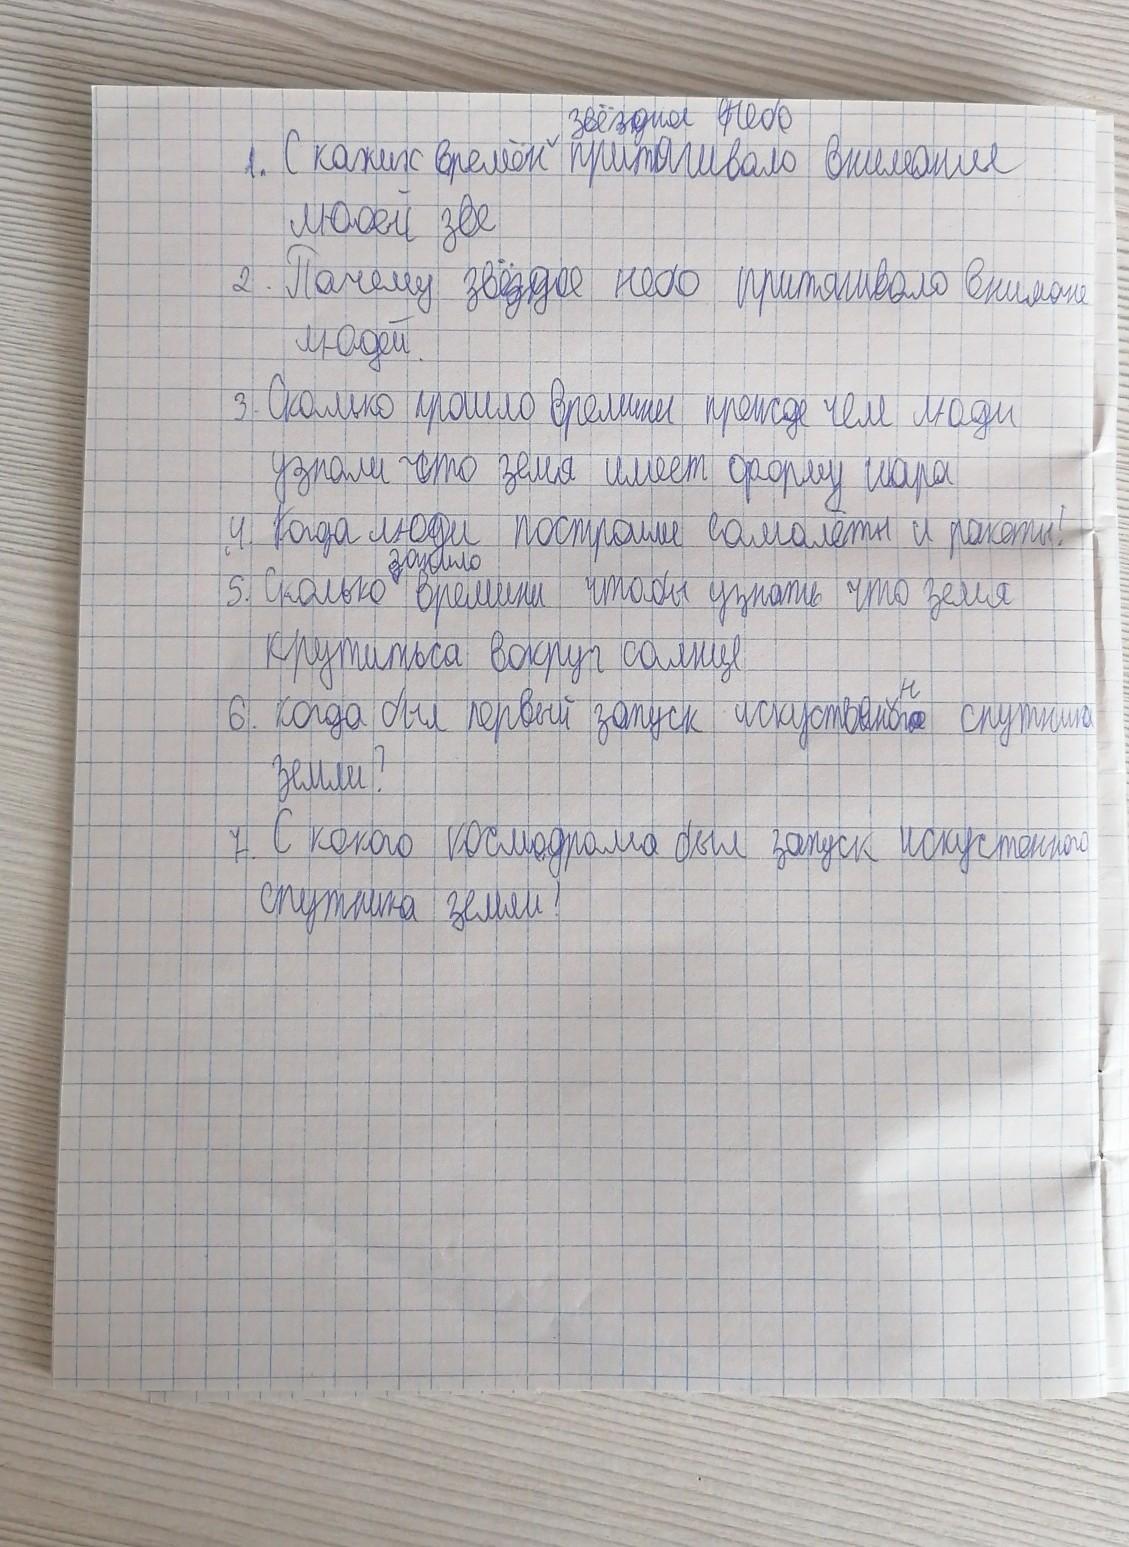 звёздна небо
1. С каких времён притягивало внимание
людей зве
2. Почему звёздое небо притягивало внимане
людей.
3. Сколько прошло времини прежде чем люди
узнали что земя имеет форму шара
4. Когда люди построили самалёты и ракеты?
заняло
5. Сколько времини чтобы узнать что земя
крутиться вокруг солнце
6. Когда был первый запуск искуственого спутника
н
земли?
7. С кокого космодрома был запуск искустенного
спутника земли?